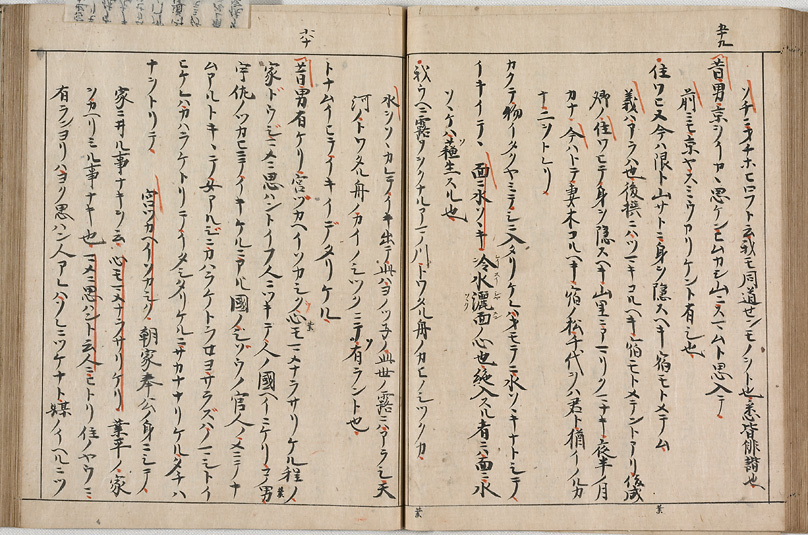 五十九
ソチニヲチホヒロフト云我モ同道センモノヲト也悉皆俳諧也
昔男京ヲイカヽ思ケンヒムカシ山ニスマムト思入テ
前ニモ京ヤスミウカリケント有シ也
住ワヒヌ今ハ限ト山サトニ身ヲ隠スヘキ宿モトメテム
義ハアラハ也後撰ニハツマキコルヘキ宿モトメテントアリ俊成
卿ノ住ワヒテ身ヲ隠スヘキ山里ニアマリクマナキ夜半ノ月
カナ今ハトテ妻木コルヘキ宿ノ松千代ヲハ君ト猶イノルカ
ナニヲトレリ
カクテ物イタクヤミテシニ入タリケレハオモテニ水ソヽキナトシテ
イキイテヽ 面ニ水ソヽキ 冷水灑面ノ心也絶入スル者ニハ面ニ水
ソヽケハ蘓生スル也
我ウヘニ露ソヲクナルアマノ川トワタル舟ノカヒノシツクカ
六十
水ソヽカレテイキ出テ此ハヨノツネノ此世ノ露ニハアラシ天
河ノトワタル舟ノカイノシツクニテ有ラント也
トナムイヒテイキイデタリケル
昔男有ケリ宮ツカヘイソカシク心モマメナラサリケル程ノ
家ドウジマメニ思ハントイフ人ニツキテ人ノ國ヘイニケリコノ男
宇佐ノツカヒニテイキケルニアル國ノシゾウノ官人ノメニテナ
ムアルトキヽテ女アルジニカハラケトラセヨサラズハノマシトイ
ヒケレハカハラケトリテイタシタリケルニサカナナリケルタチハ
ナヲトリテ 宮ツカヘイソカシク 朝家奉公ノ身ニシテ
家ニ井ル事ナキヲ云 心モマメナラサリケリ 業平ノ家
ヲカヘリミル事ナキ也 マメニ思ハント云人ニ ヒトリ住ノヤウニ
有ランヨリハヨク思ハン人アレハソレニツケナト媒ノイヘルニツ